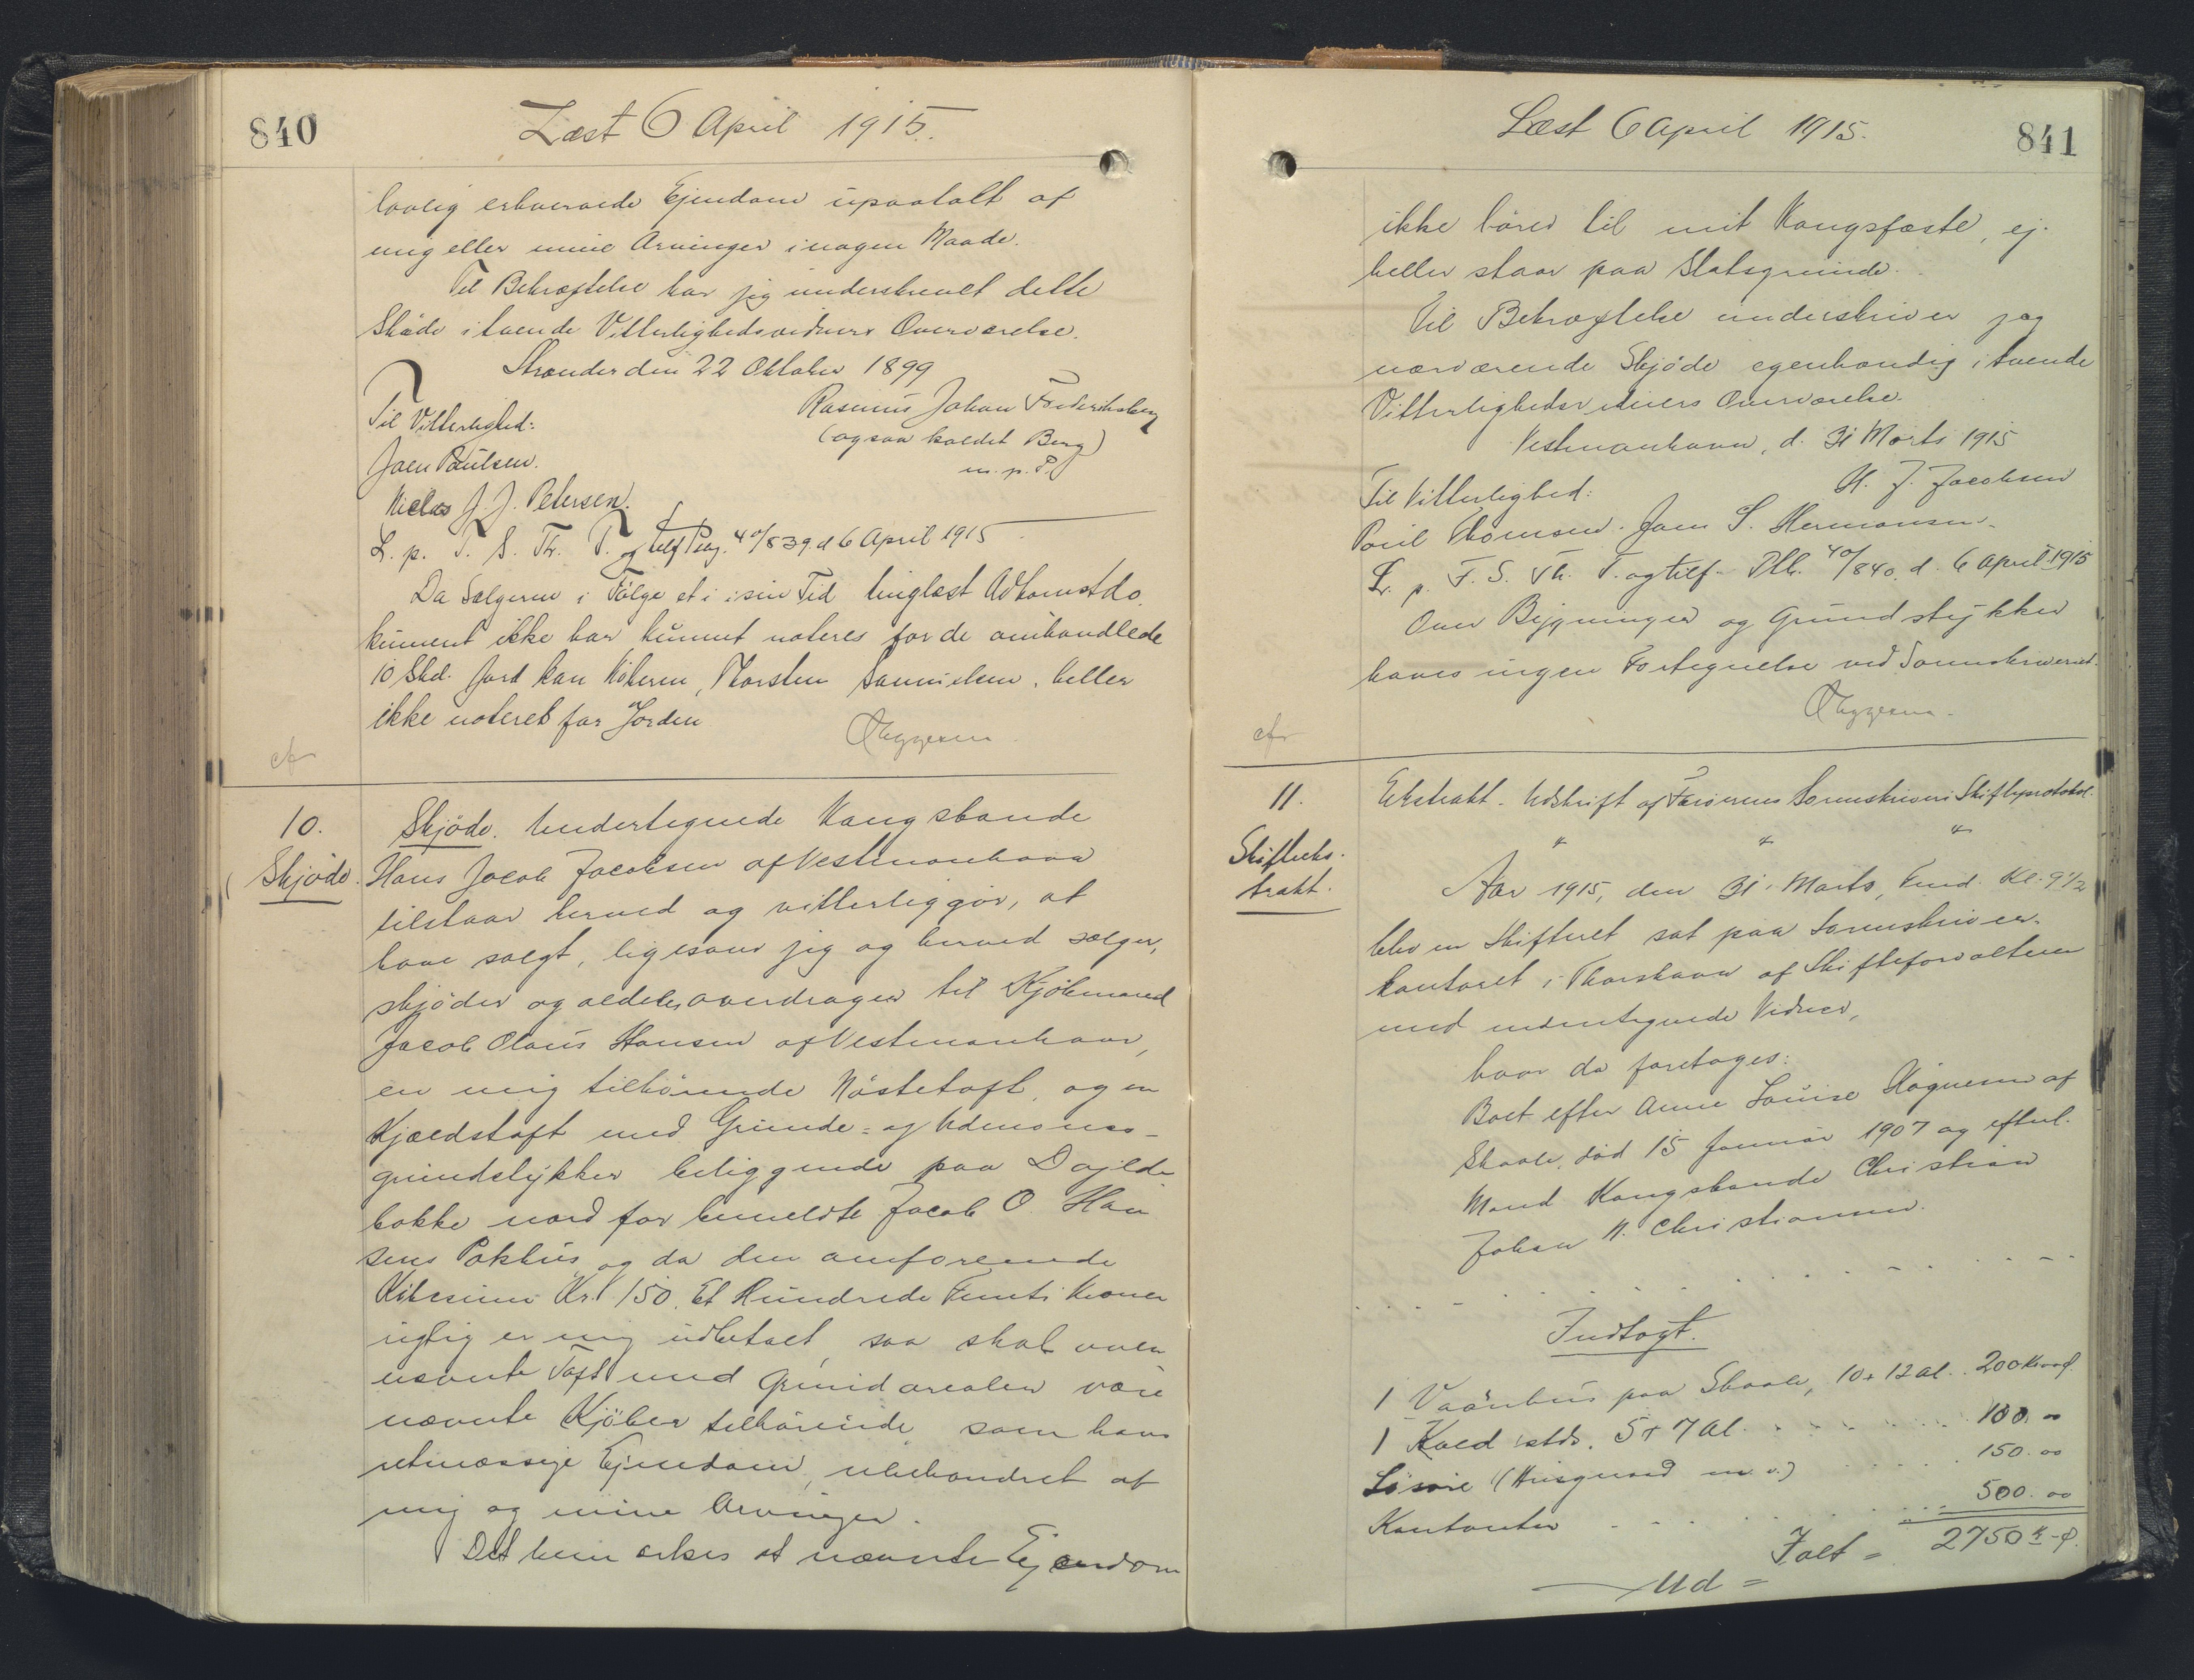 840
Læst 6 April 1915.
lovlig erhvervede Ejendom upaatalt af
mig eller mine Arvinger i nogen Maade.
Til Bekræftelse har jeg underskrevet dette
Skøde i tvende Vitterlighedsvidners Overværelse.
Strender den 22 Oktober 1899
Til Vitterlighed:
Rasmus Johan Frederiksberg
(ogsaa kaldet Berg)
Joen Poulsen.
m. p. P.
Niclas J. J. Petersen.
L. p. F. S. Th. P. og tilf Prag. 40/839 d 6 April 1915
Da Sælgeren i Følge et i sin Tid tinglæst Adkomstdo
kument ikke har kunnet noteres for de omhandlede
10 Skd. Jord kan Køberen, Thorsten Samuelsen, heller
ikke noteres for Jorden
cfr
10.
Skjøde.
Skjøde. Undertegnede Kongsbonde
Hans Jacob Jacobsen af Vestmanhavn
tilstaar herved og vitterliggør, at
have solgt, ligesom jeg og herved sælger,
skjøder og aldeles overdrager til Kjøbmand
Jacob Claus Hansen af Vestmanhavn,
en mig tilhørende Nöstetoft, og en
Kjældstoft med Grunde- og Udmarks-
grundstykker beliggende paa
bakke nord for bemeldte Jacob O. Han
sens Pakhus, og da den omforenede
Købesum Kr. 150. Et Hundrede Femti Kroner
rigtig er mig udbetalt, saa skal oven
nævnte Toft med Grundarealer være
nævnte Kjøber tilhørende som hans
retmæssige Ejendom, ubehandret af
mig og mine Arvinger.
Det bemærkes at nævnte Ejendom
Læst 6 April 1915.
841
ikke hører til mit Kongsfæste, ej
heller staar paa Statsgrunde.
Til Bekræftelse underskriver jeg
nærværende Skjøde egenhændig i tvende
Vitterlighedsvidners Overværelse.
Vestmanhavn, d. 31 Marts 1915
Til Vitterlighed:
H. J. Jacobsen
Poul Thomsen. Joen S. Hermansen.
L. p. F. S. Th. T. og tilf. 40/840. d. 6 April 1915
Over Bygninger og Grundstykker
haves ingen Fortegnelse ved Sorenskriveriet.
cfr
11.
Skifteeks-
trakt.
Ekstrakt-Udskrift af Færøernes Sorenskriveris Skifteprotokol.
" " "
Aar 1915, den 31. Marts, Fmd. Kl. 9 1/2
blev en Skifteret sat paa Sorenskriver-
kontoret i Thorshavn af Skifteforvalteren
med undertegnede Vidner,
hvor da foretoges:
Boet efter Anne Louise Høgnesen af
Skaale, død 15 Januar 1907 og efterl.
Mand Kongsbonde Christian
Johan N. Christiansen.
Indtægt.
1 Vaanhus paa Skaale, 10 x 12 Al. . 200
1 Kæld stds. 5 x 7 Al. . . . . 100. 00
Løsøre (Husgeraad m. v.) . . . 150. 00
Kontanter . . . . . 500. 00
Ialt = 2750
Ud =